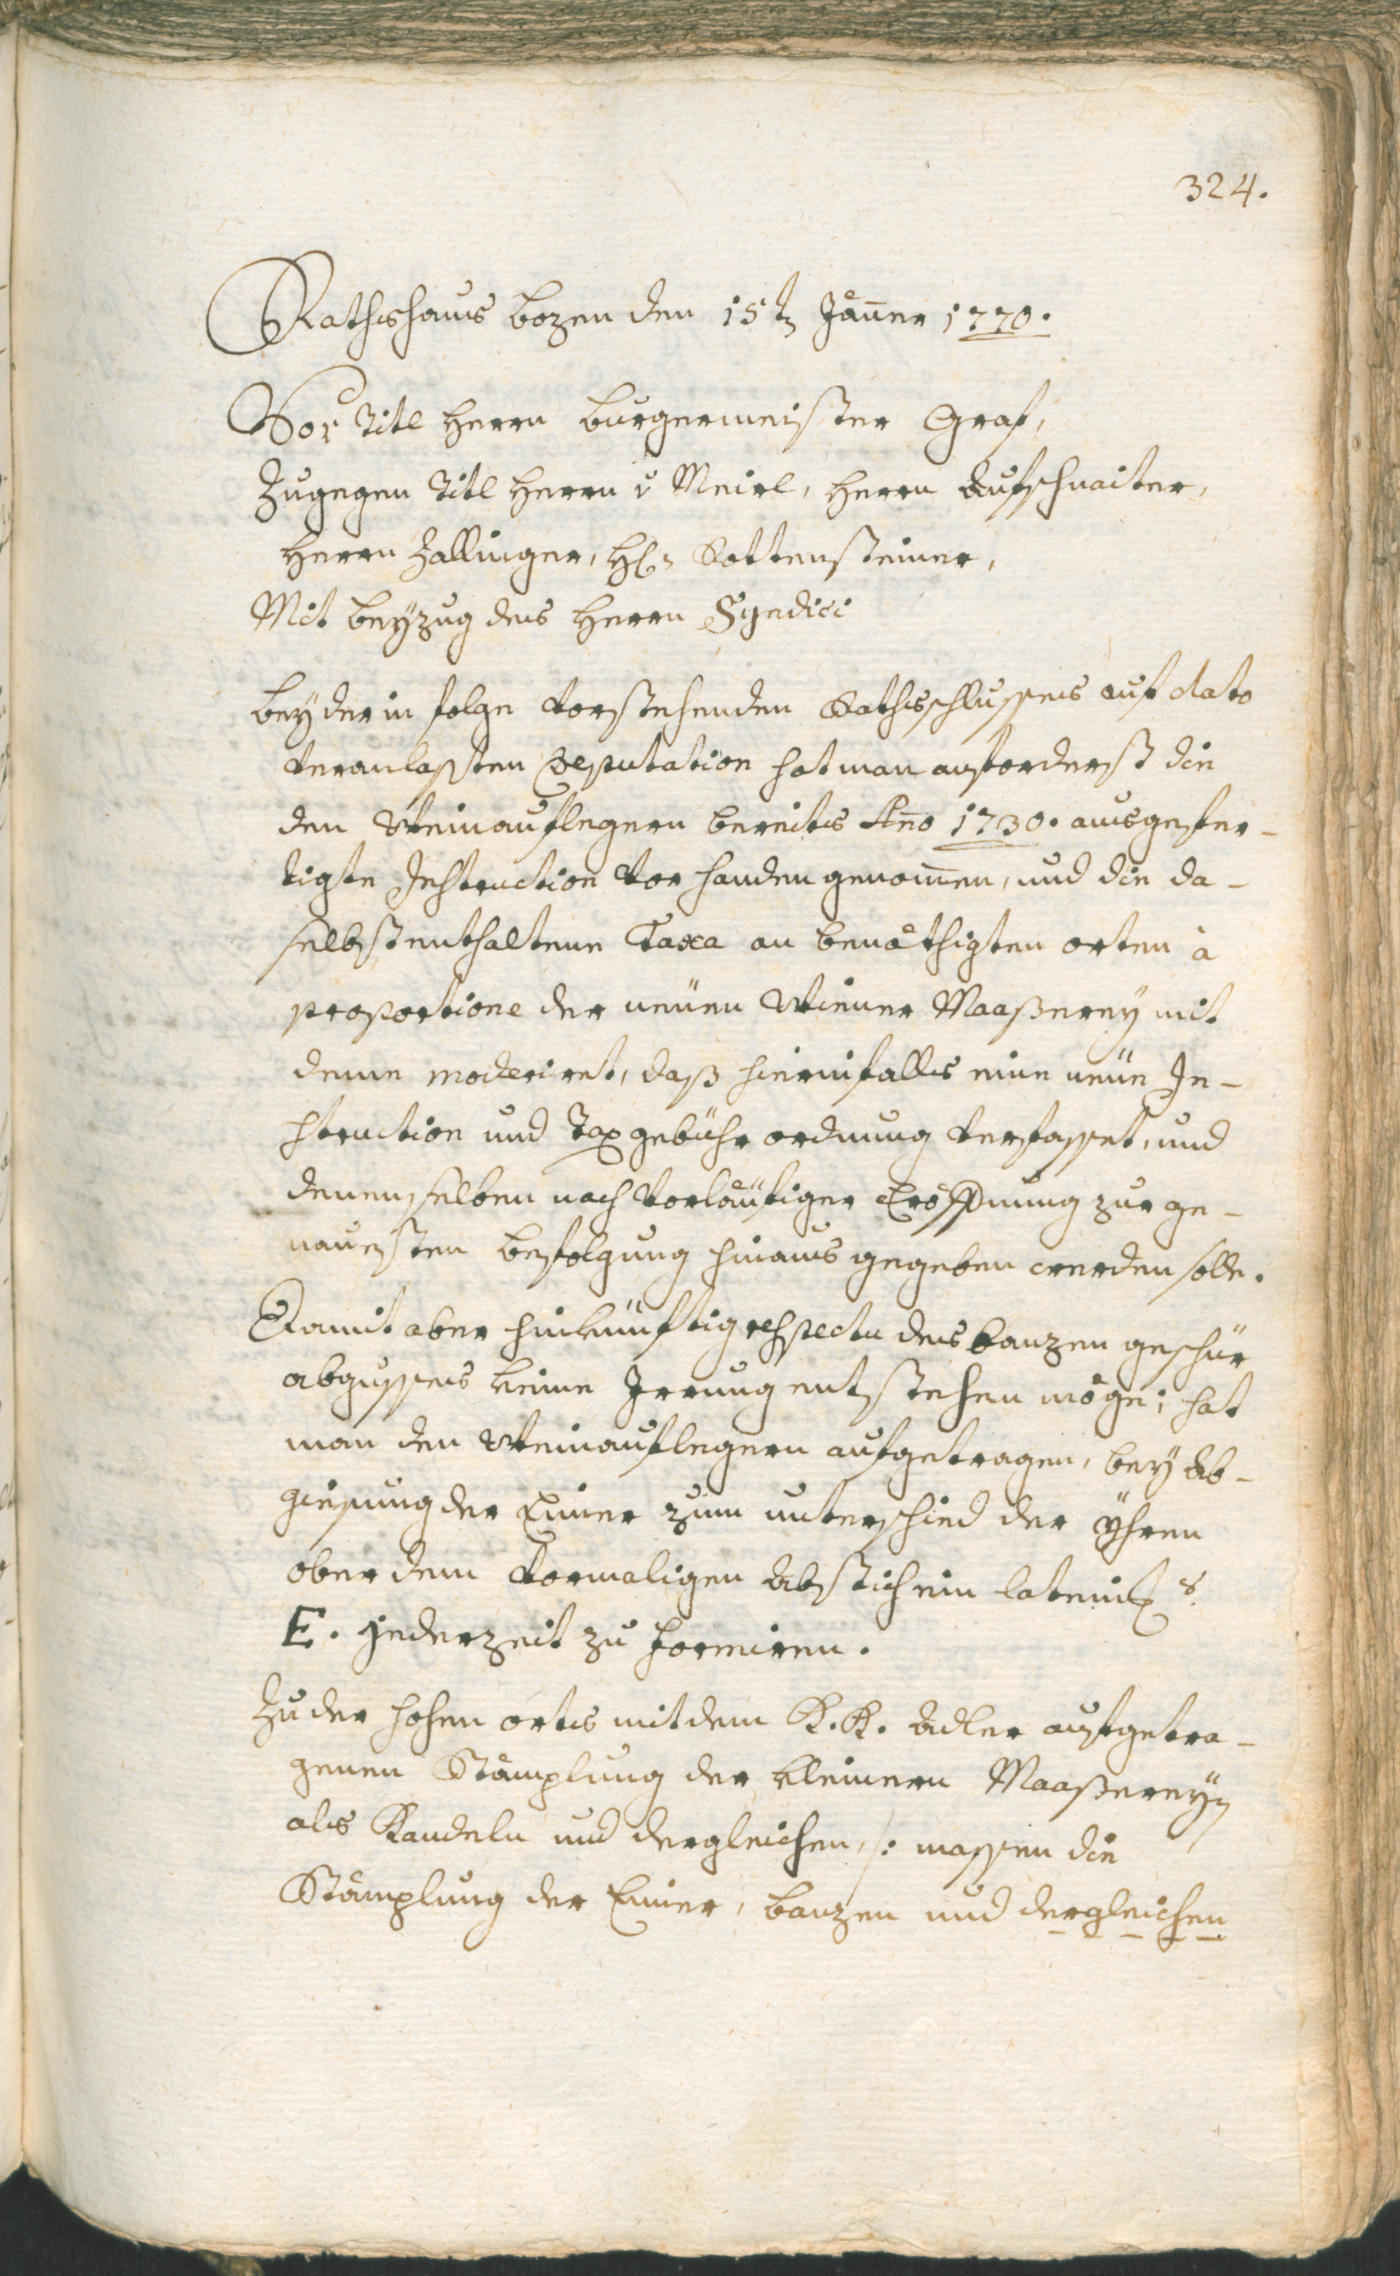 324.
Rathshaus Bozen den 15t Jäner 1770.
Vor Titl Herrn Burgermeister Graf,
Zugegen Titl Herrn v Meirl, Herrn Aufschnaiter,
Herrn Zallinger, Hl: Rottensteiner,
Mit beyzug des Herrn Syndici
bey der in folge vorstehenden Rathsschlusses auf dato
veranlaßten Deputation hat man anforderst die
den Weinauflegern bereits Ano 1730. ausgefer-
tigte Instruction vor handen genommen, und die da-
selbst enthaltene Taxa an benöthigten orten à
proportione der neüen Wiener Maaßerey mit
deme moderiret, daß hierinfalls eine neüe In-
struction und Taxgebühr ordnung verfasset, und
denenselben nach vorläufiger Eröffnung zur ge-
nauesten befolgung hinaus gegeben werden solle.
Damit aber hinkünftig respectu des banzen geschür
abgusses keine Irrung entstehen möge; hat
man den Weinauflegern aufgetragen, bey Ab-
giesung der Eimer zum unterschied der Yhren
ober dem vormaligen Abstich ein lateinis
E. jederzeit zu formiren.
Zu der hohen orts mit dem K. K. Adler aufgetra-
genen Stämplung der kleinern Maaßereyen
als Kandeln und dergleichen, /: massen die
Stämplung der Eimer, banzen und dergleichen